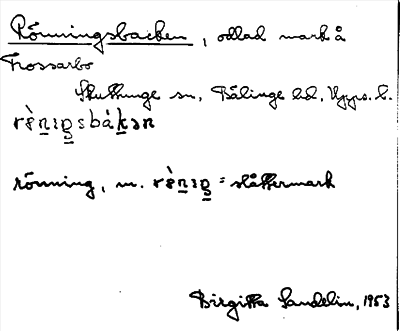 Rönningsbacken, odlad mark å
Trossarbo
Skuttunge sn, Bälinge hd, Upps. l.
rø̀nɪŋsbákən
rönning, m. rø̀nɪŋ = slåttermark
Birgitta Sandelin, 1953